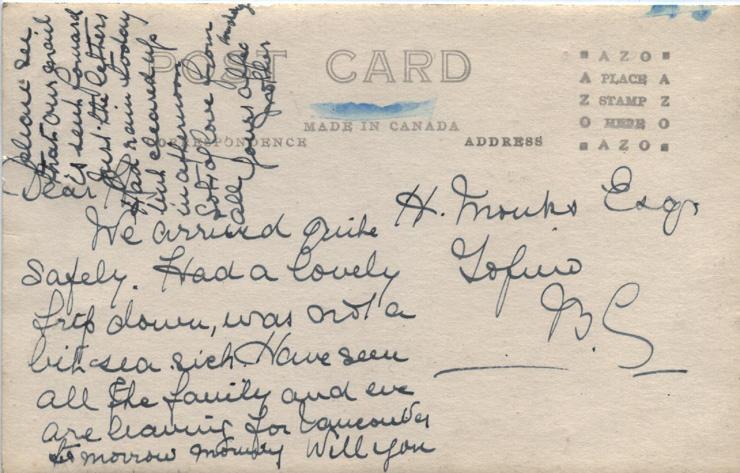 POST CARD
MADE IN CANADA
CORRESPONDENCE
ADDRESS
AZO
A PLACE A
Z STAMP Z
O HERE O
AZO
Dear
We arrived quite
safely. Had a lovely
trip down, was not a
bit sea sick. Have seen
all the family and
are leaving for Vancouver
to morrow morning Will you
please see
that our mail
is sent forward
just the letters
Had rain today
but cleared up
in afternoon
Lots of love from
all yours affec
Mother
H. Monks Esq.
Tofino
B.C.